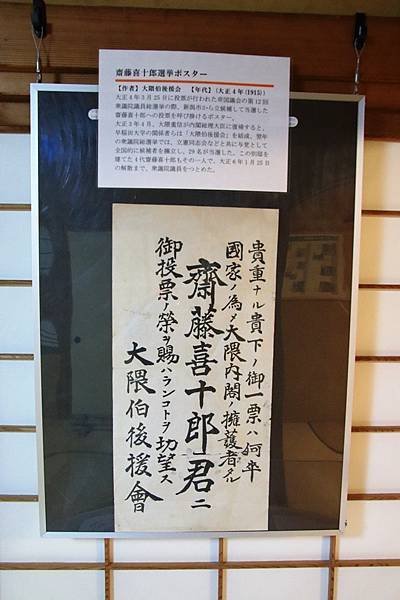 齋藤喜十郎選挙ポスター
【作者】大隈伯後援会　【年代】（大正4年(1915)）
大正4年3月25日に投票が行われた帝国議会の第12回
衆議院議員総選挙の際、新潟市から立候補して当選した
齋藤喜十郎への投票を呼び掛けるポスター。
大正3年4月、大隈重信が内閣総理大臣に復帰すると、
早稲田大学の関係者らは「大隈伯後援会」を結成、翌年
の衆議院総選挙では、立憲同志会などと共に与党として
全国的に候補者を擁立し、29名が当選した。この別邸を
建てた4代齋藤喜十郎もその一人で、大正6年1月25日
の解散まで、衆議院議員をつとめた。
貴重ナル貴下ノ御一票ハ何卒
國家ノ為メ大隈内閣ノ擁護者タル
齋藤喜十郎君ニ
御投票ノ榮ヲ賜ハランコトヲ切望ス
大隈伯後援會